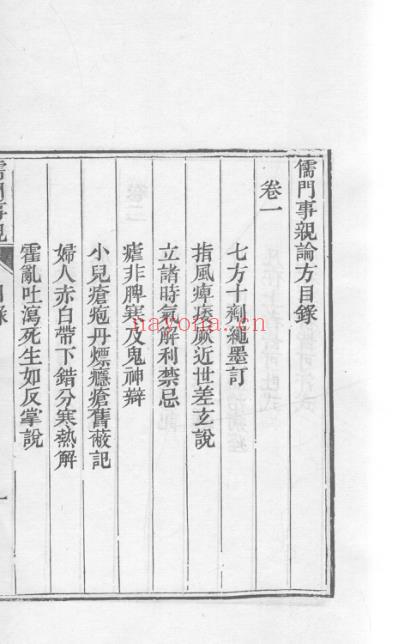 儒門事親論方目錄
卷一
七方十劑繩墨訂
指風痺痿厥近世差玄說
立諸時氣解利禁忌
瘧非脾寒及鬼神辯
小兒瘡疱丹熛癮疹舊蔽記
婦人赤白帶下錯分寒熱解
霍亂吐瀉死生如反掌說
儒門事親
目錄
一
nayona.cn